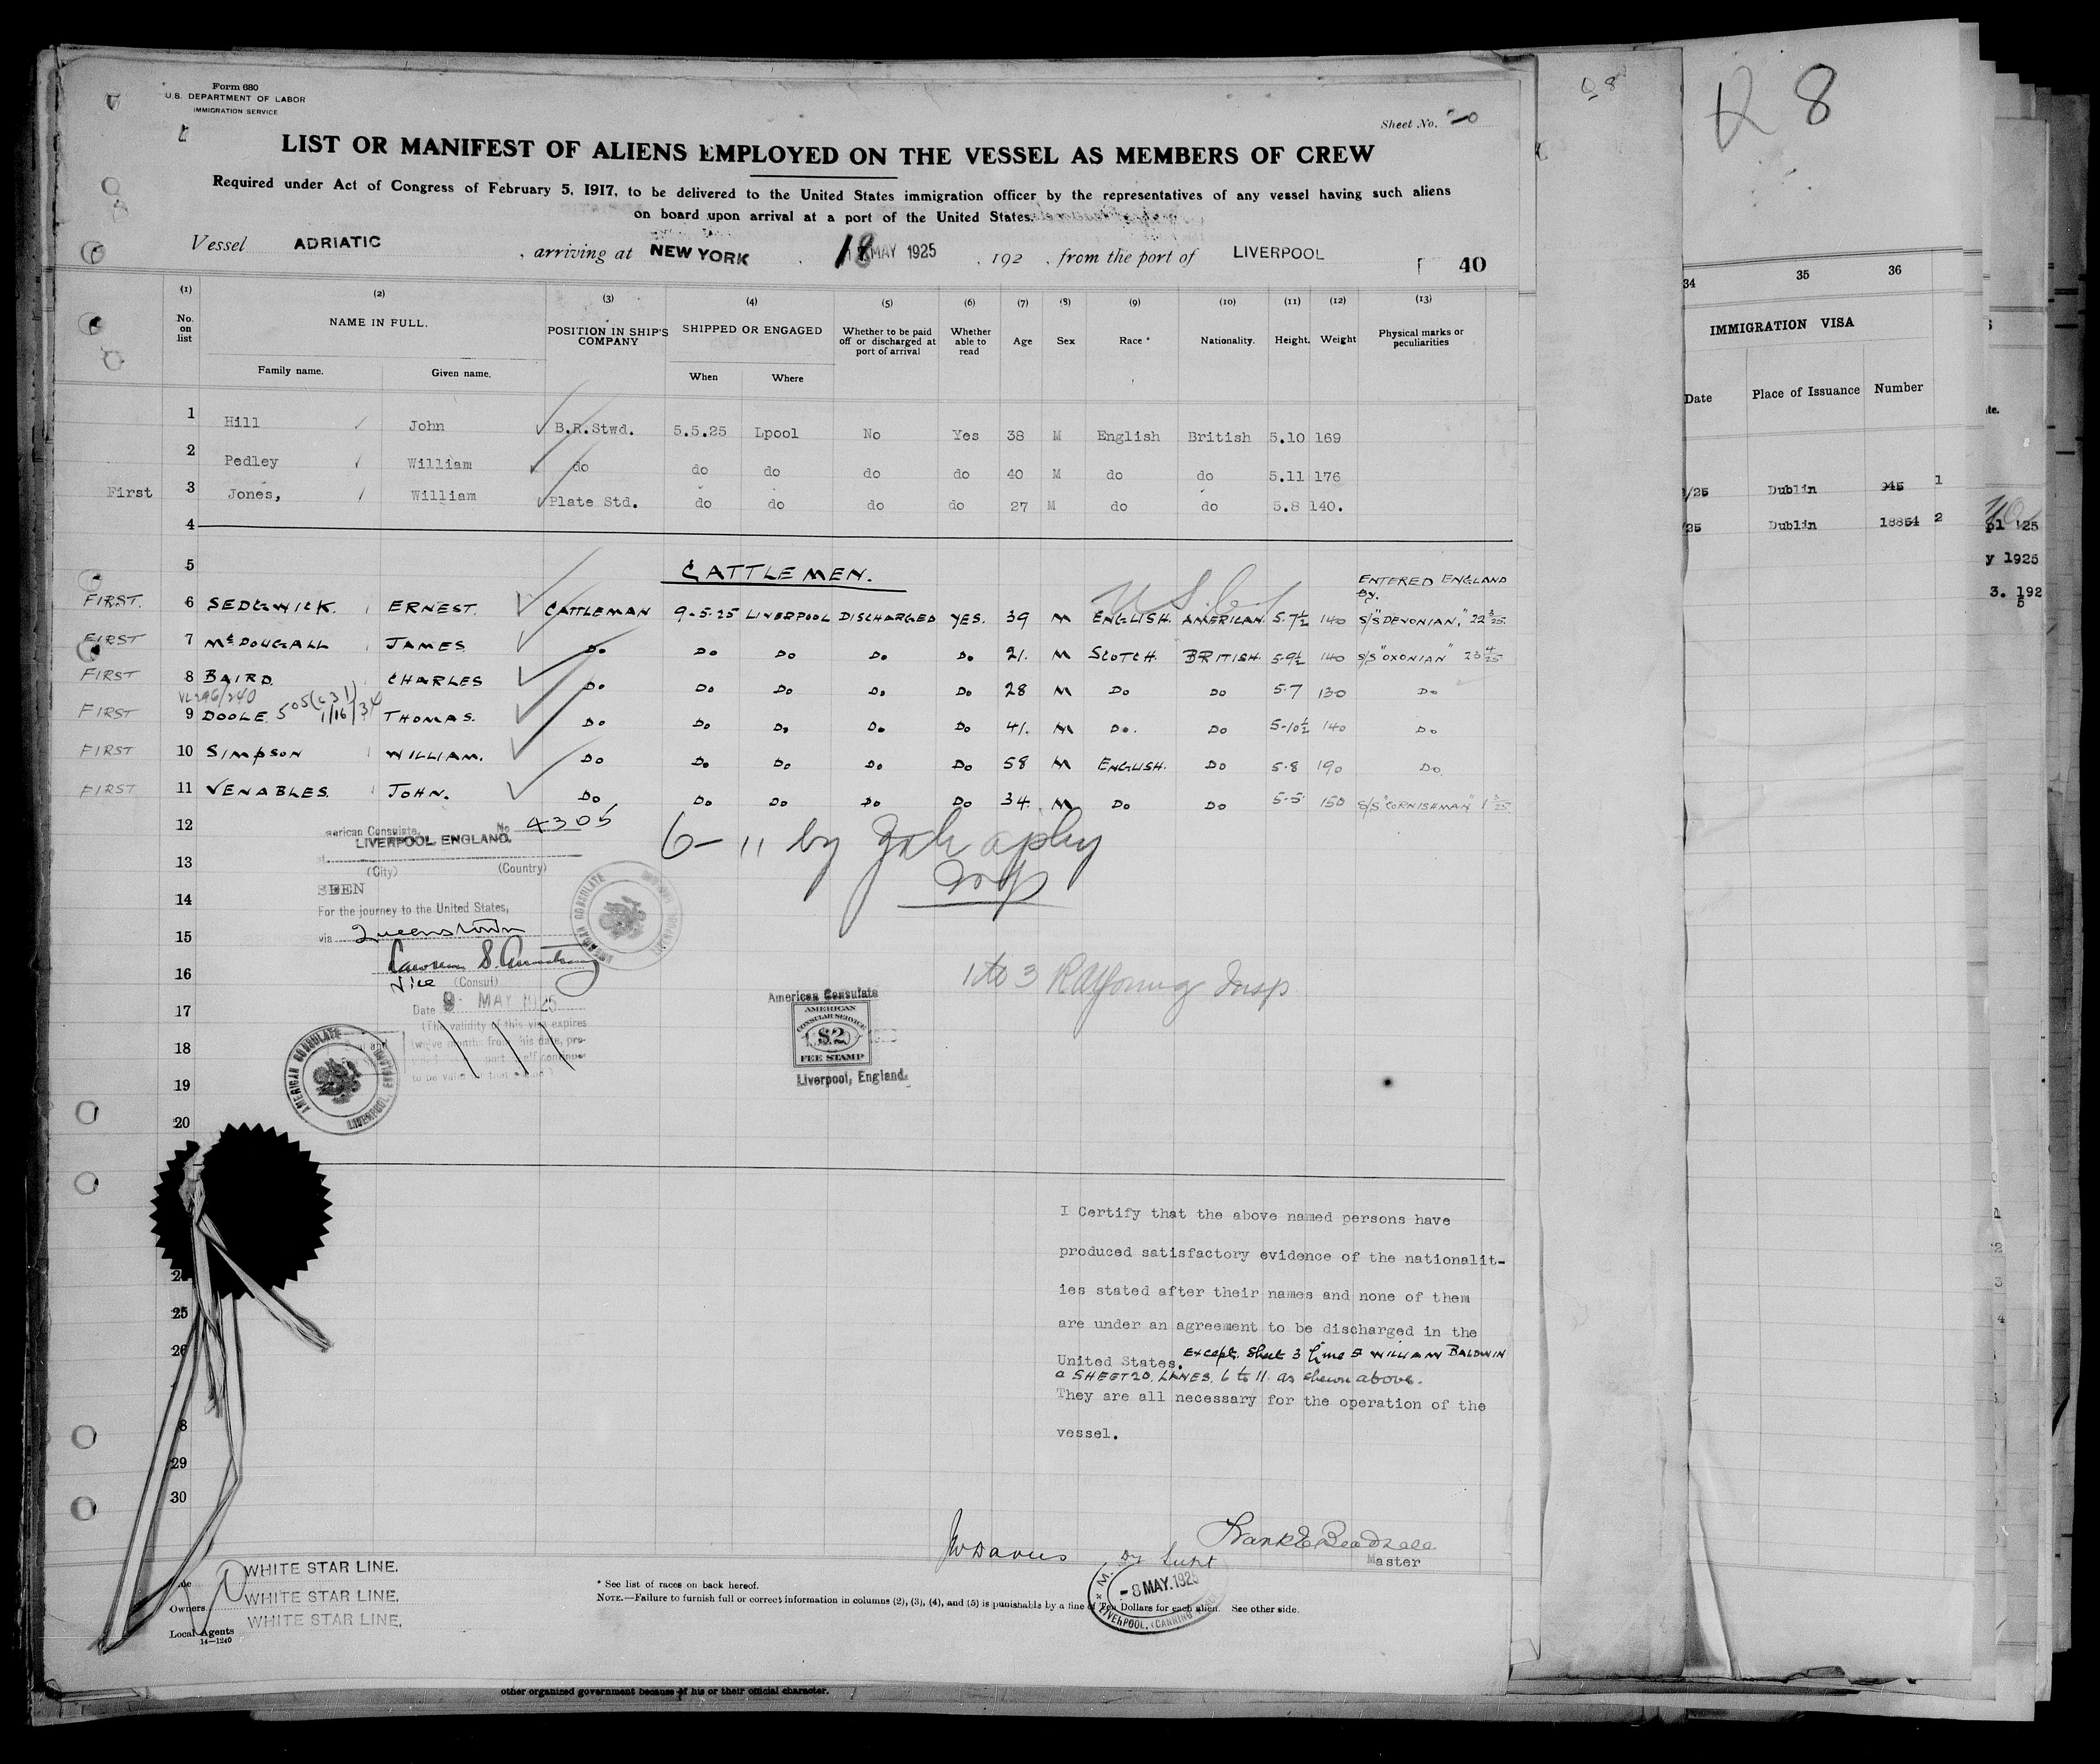 Form 680
U.S. DEPARTMENT OF LABOR
IMMIGRATION SERVICE
Sheet No. 20
LIST OR MANIFEST OF ALIENS EMPLOYED ON THE VESSEL AS MEMBERS OF CREW
Required under Act of Congress of February 5, 1917, to be delivered to the United States immigration officer by the representatives of any vessel having such aliens
on board upon arrival at a port of the United States.
Vessel ADRIATIC , arriving at NEW YORK 18 MAY 1925 , 192 , from the port of LIVERPOOL 40
(1) (2) (3) (4) (5) (6) (7) (8) (9) (10) (11) (12) (13)
No. on list NAME IN FULL. POSITION IN SHIP'S COMPANY SHIPPED OR ENGAGED Whether to be paid off or discharged at port of arrival Whether able to read Age Sex Race * Nationality. Height. Weight Physical marks or peculiarities
Family name. Given name. When Where
1 Hill John B.R.Stwd. 5.5.25 Lpool No Yes 38 M English British 5.10 169
2 Pedley William do do do do do 40 M do do 5.11 176
First 3 Jones, William Plate Std. do do do do 27 M do do 5.8 140.
4
5 CATTLEMEN. ENTERED ENGLAND By.
U.S.C.
FIRST. 6 SEDGWICK. ERNEST. CATTLEMAN 9-5-25 LIVERPOOL DISCHARGED YES. 39 M ENGLISH. AMERICAN. 5-7½ 140 S/S "DEVONIAN," 22 3/25
FIRST 7 McDOUGALL JAMES Do Do Do Do Do 21. M SCOTCH. BRITISH. 5-9½ 140 S/S "OXONIAN" 23 4/25
FIRST 8 BAIRD. CHARLES Do Do Do Do Do 28 M Do Do 5-7 130 Do
505(c31) 1/16/34
FIRST 9 DOOLE THOMAS. Do Do Do Do Do 41. M Do. Do 5-10½ 140 Do
FIRST 10 SIMPSON WILLIAM. Do Do Do Do Do 58 M ENGLISH. Do 5-8 190 Do
FIRST 11 VENABLES. JOHN. Do Do Do Do Do 34. M Do Do 5-5 150 S/S "CORNISHMAN" 1 3/25
12
American Consulate, No 4305
LIVERPOOL ENGLAND.
6-11 by
13
(City) (Country)
Insp
SEEN
14
For the journey to the United States,
15
via Queenstown
16
Vice (Consul)
1 to 3 Insp
Date 9 MAY 1925
17
(The validity of this visa expires
twelve months from this date, pro-
18
to be valid
19
20
AMERICAN CONSULATE
AMERICAN CONSULATE LIVERPOOL
American Consulate
AMERICAN
CONSULAR SERVICE
$2
FEE STAMP
Liverpool, England.
I Certify that the above named persons have
produced satisfactory evidence of the nationalit-
ies stated after their names and none of them
are under an agreement to be discharged in the
United States. Except. Sheet 3 line 5 WILLIAM BALDWIN
a SHEET 20, LINES, 6 to 11 as shewn above.
They are all necessary for the operation of the
vessel.
25
26
8
29
30
Master
WHITE STAR LINE.
Owners WHITE STAR LINE.
Local Agents WHITE STAR LINE.
14—1240
* See list of races on back hereof.
NOTE.—Failure to furnish full or correct information in columns (2), (3), (4), and (5) is punishable by a fine of Ten Dollars for each alien. See other side.
-8 MAY. 1925
LIVERPOOL, (CANNING
other organized government because of his or their official character.
Q 8
R 8
34 35 36
IMMIGRATION VISA
Date Place of Issuance Number
/25 Dublin 945 1
/25 Dublin 18854 2
pl '25
y 1925
3. 192
5